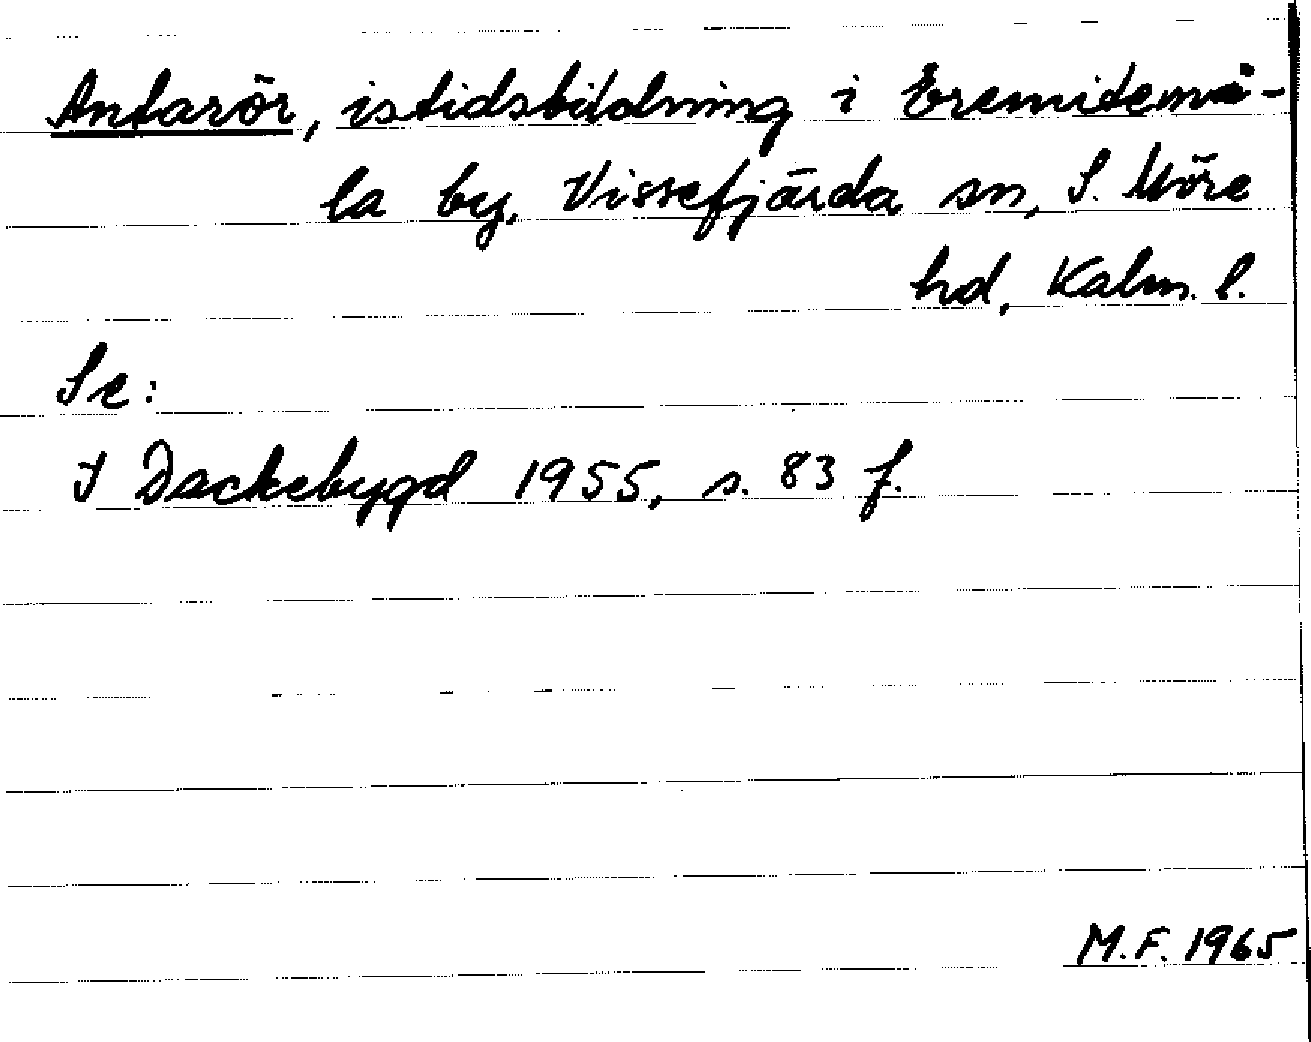 Antarör, istidsbildning i Eremitemå-
la by, Vissefjärda sn, S. Möre
hd, Kalm. l.
Se:
I Dackebygd 1955, s. 83 f.
M.F. 1965